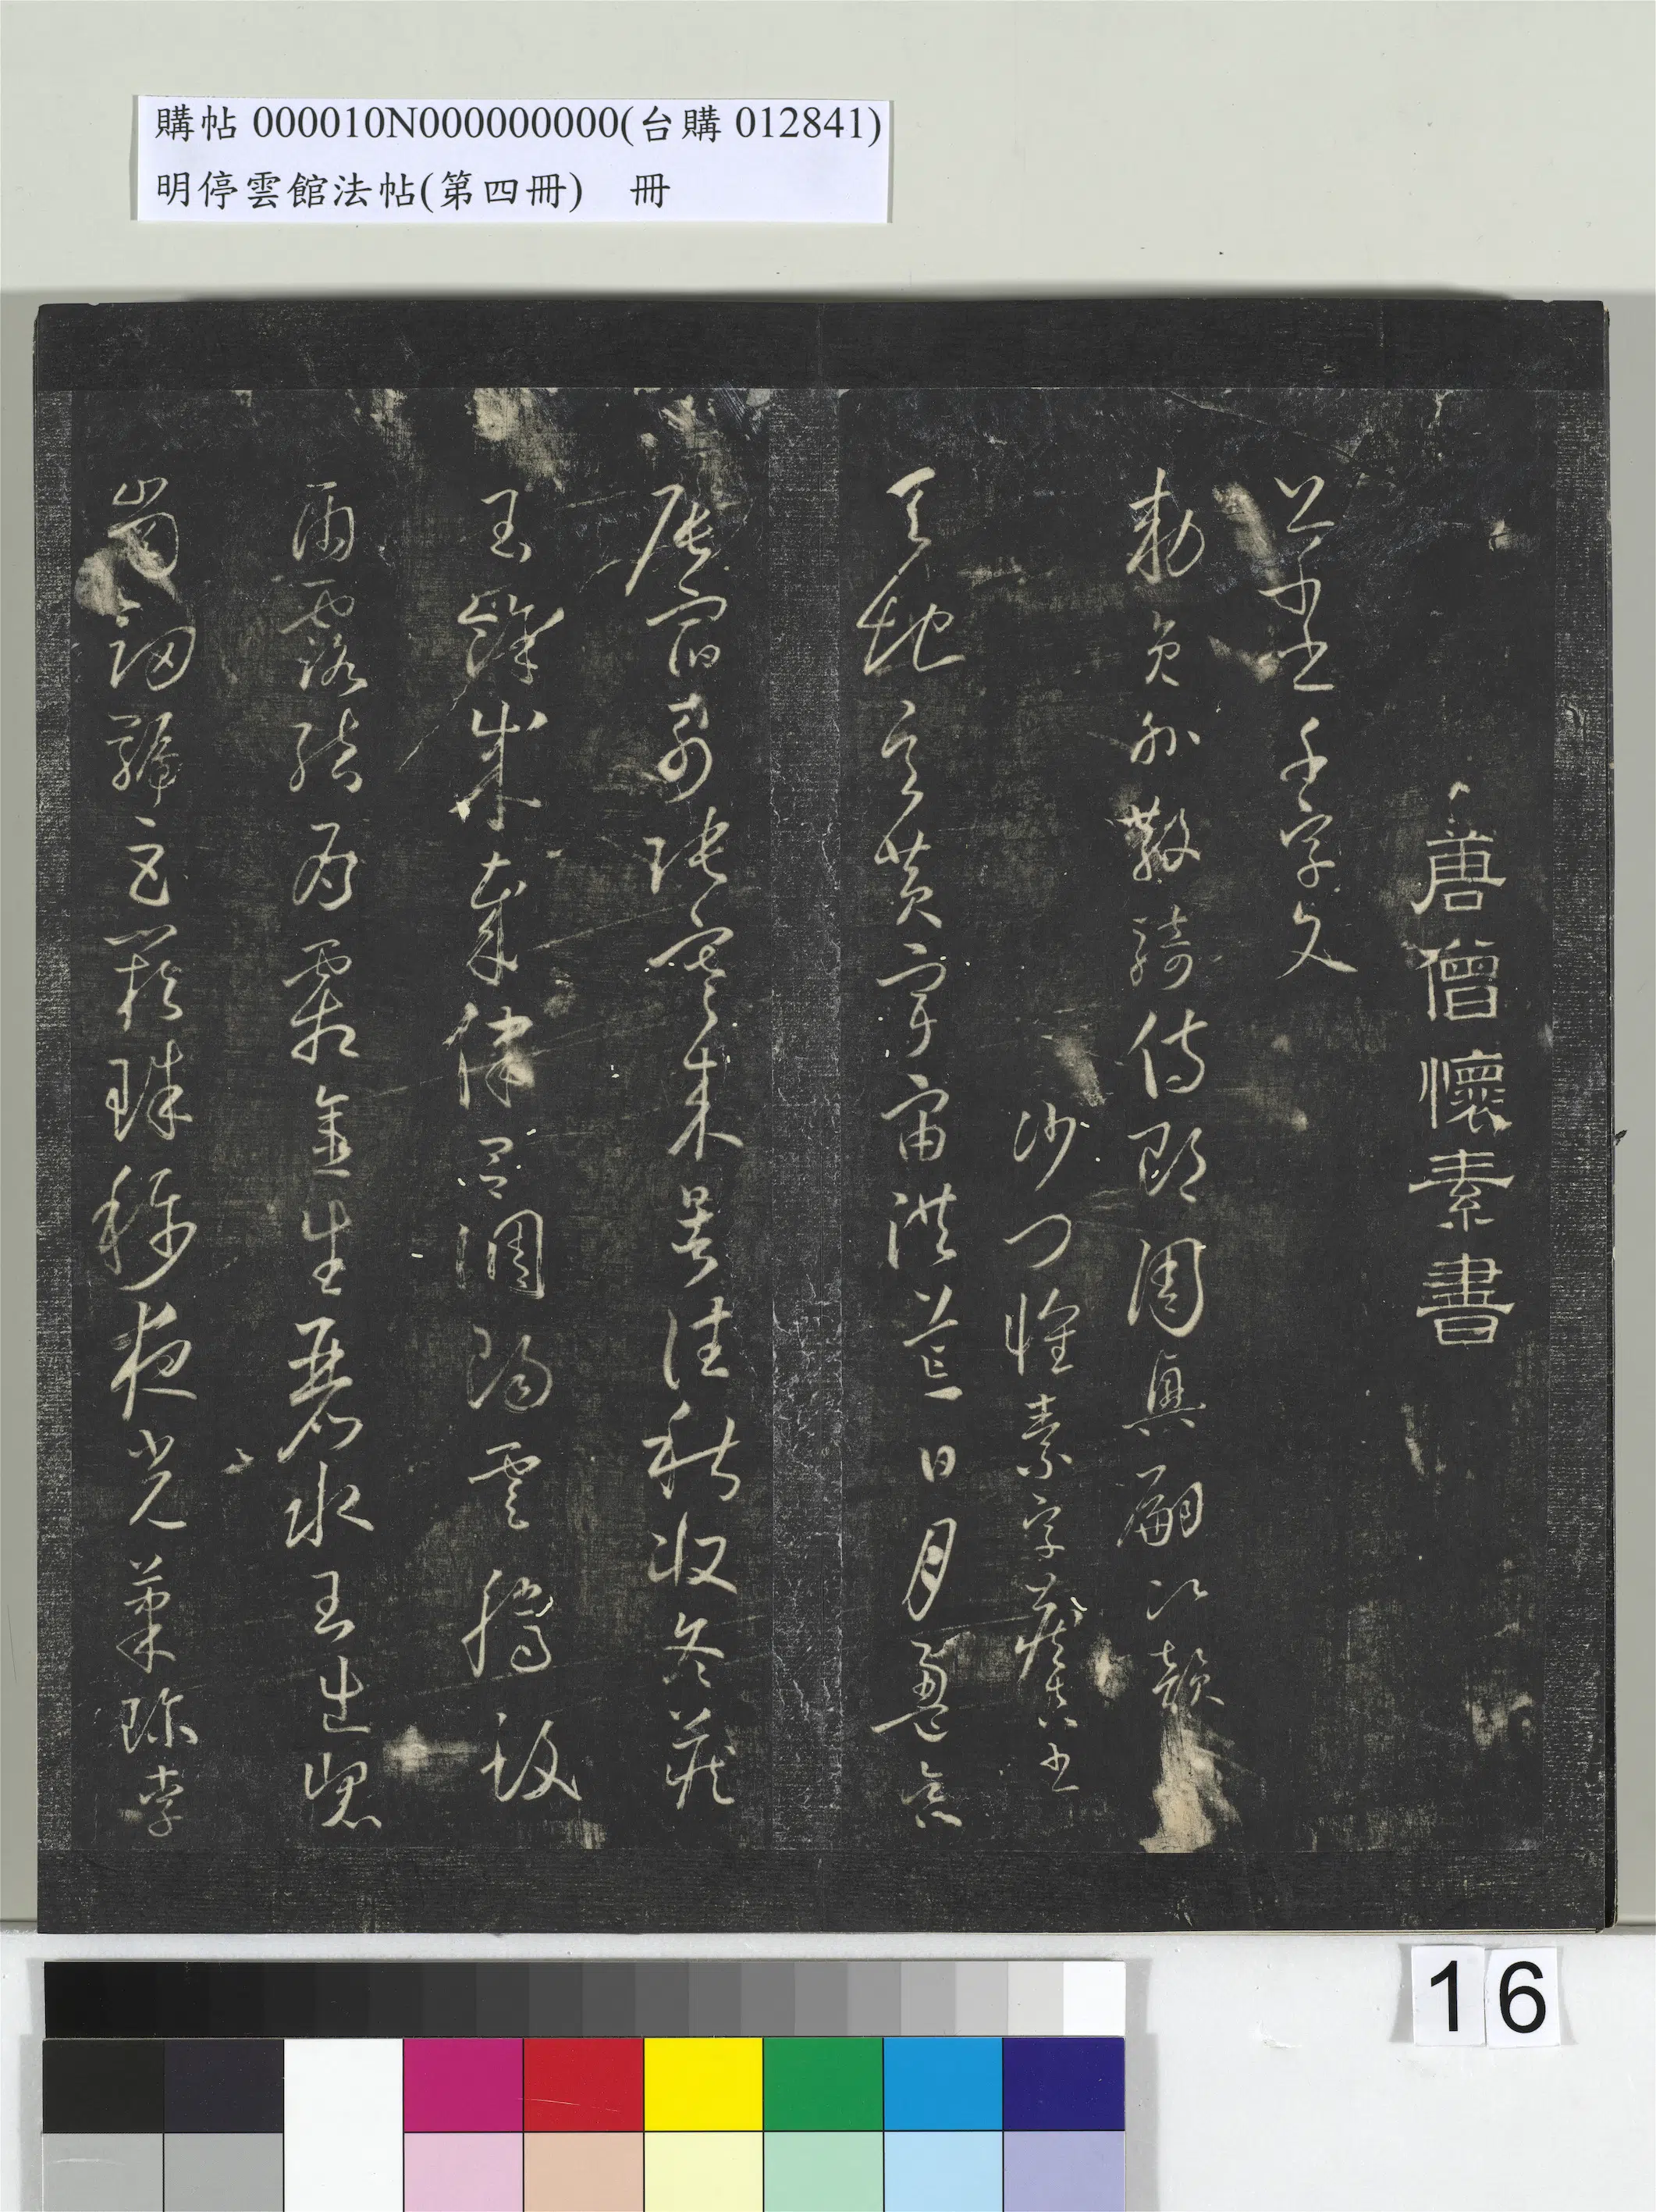 購帖 000010N000000000(台購 012841)
明停雲館法帖(第四冊) 冊
唐僧懷素書
草書千字文
勅員外散騎侍郎周興嗣次韻
沙門懷素字藏真書
天地玄黃宇宙洪荒日月盈昃
辰宿列張寒來暑往秋收冬藏
閏餘成歲律呂調陽雲騰致
雨露結為霜金生麗水玉出崑
崗劍號巨闕珠稱夜光菓珍李
16